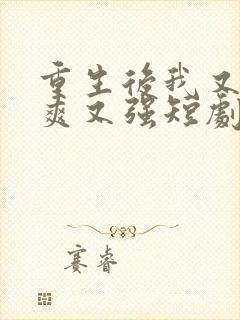 重生後我又
爽又強短劇
赛睿